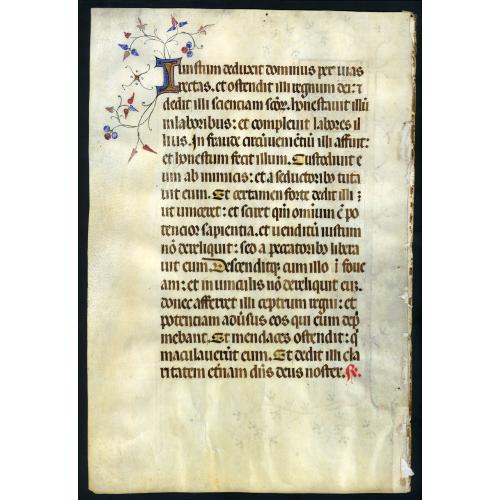 Iustum deduxit dominus per vias
rectas. et ostendit illi regnum dei: ⁊
dedit illi scienciam scõr. honestauit illũ
in laboribus: et compleuit labores il
lius. In fraude circũueniẽciũ illi affuit:
et honestum fecit illum. Custodiuit e
um ab inimicis: et a seductoribꝰ tuta
uit eum. Et certamen forte dedit illi ⁊
ut uinceret: et sciret qm̃ omiũm ẽ po
tencior sapiencia. et uenditũ iustum
nõ dereliquit: sed a peccatoribꝰ libera
uit eum. Descenditqꝫ cum illo ĩ foue
am: et in uinculis nõ dereliquit eũ:
donec afferret illi ceptrum regni: et
potenciam aduꝰsus eos qui eum dep̃
mebant. Et mendaces ostendit: q̃
maculauerũt eum. Et dedit illi cla
ritatem et̃nam dñs deus noster. R.